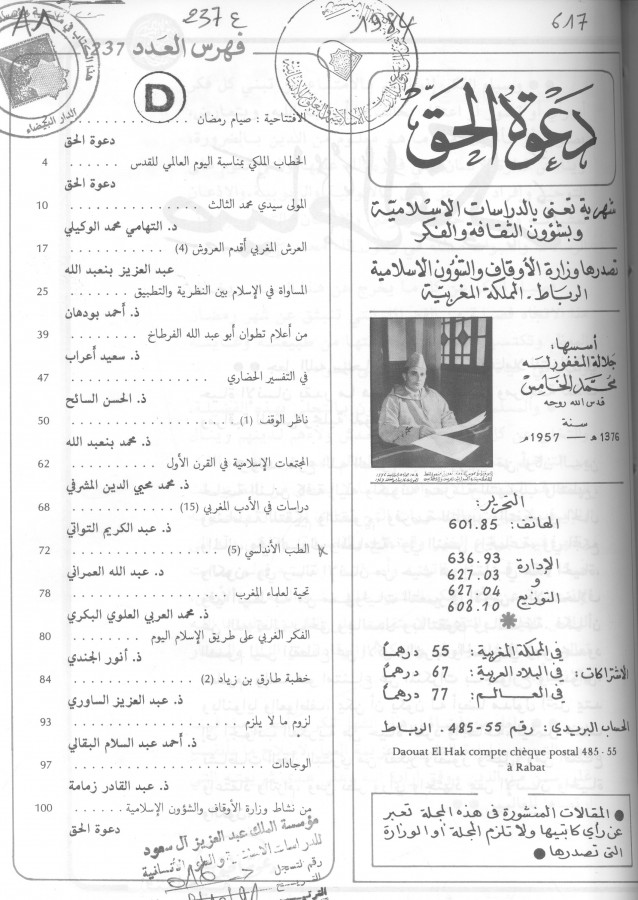 617
1984
237 ع
دعوة الحق
شهرية تعنى بالدراسات الاسلامية
وبشؤون الثقافة والفكر
تصدرها وزارة الأوقاف والشؤون الاسلامية
الرباط - المملكة المغربية
أسسها:
جلالة المغفور له
محمد الخامس
قدس الله روحه
سنة
1376 هـ — 1957 م
التحرير:
الهاتف: 601.85
الإدارة
و
التوزيع
636.93
627.03
627.04
608.10
الاشتراكات:
في المملكة المغربية: 55 درهماً
في البلاد العربية: 67 درهماً
في العــالــم: 77 درهماً
الحساب البريدي: رقم 55-485. الرباط
Daouat El Hak compte chèque postal 485 - 55
à Rabat
● المقالات المنشورة في هذه المجلة تعبر
عن رأي كاتبيها ولا تلزم المجلة أو الوزارة
التي تصدرها ●
فهرس العدد 237
D
الافتتاحية : صيام رمضان
دعوة الحق
الخطاب الملكي بمناسبة اليوم العالمي للقدس ...... 4
دعوة الحق
المولى سيدي محمد الثالث ...... 10
د. التهامي محمد الوكيلي
العرش المغربي أقدم العروش (4) ...... 17
عبد العزيز بنعبد الله
المساواة في الإسلام بين النظرية والتطبيق ...... 25
ذ. أحمد بودهان
من أعلام تطوان أبو عبد الله الفرطاخ ...... 39
ذ. سعيد أعراب
في التفسير الحضاري ...... 47
ذ. الحسن السائح
ناظر الوقف (1) ...... 50
ذ. محمد بنعبد الله
المجتمعات الإسلامية في القرن الأول ...... 62
ذ. محمد محيي الدين المشرفي
دراسات في الأدب المغربي (15) ...... 68
ذ. عبد الكريم التواتي
الطب الأندلسي (5) ...... 72
د. عبد الله العمراني
تحية لعلماء المغرب ...... 78
ذ. محمد العربي العلوي البكري
الفكر الغربي على طريق الإسلام اليوم ...... 80
ذ. أنور الجندي
خطبة طارق بن زياد (2) ...... 84
ذ. عبد العزيز الساوري
لزوم ما لا يلزم ...... 93
ذ. أحمد عبد السلام البقالي
الوجادات ...... 97
ذ. عبد القادر زمامة
من نشاط وزارة الأوقاف والشؤون الإسلامية ...... 100
دعوة الحق
مؤسسة الملك عبد العزيز آل سعود
للدراسات الاسلامية والعلوم الانسانية
رقم التسجيل
الدار البيضاء